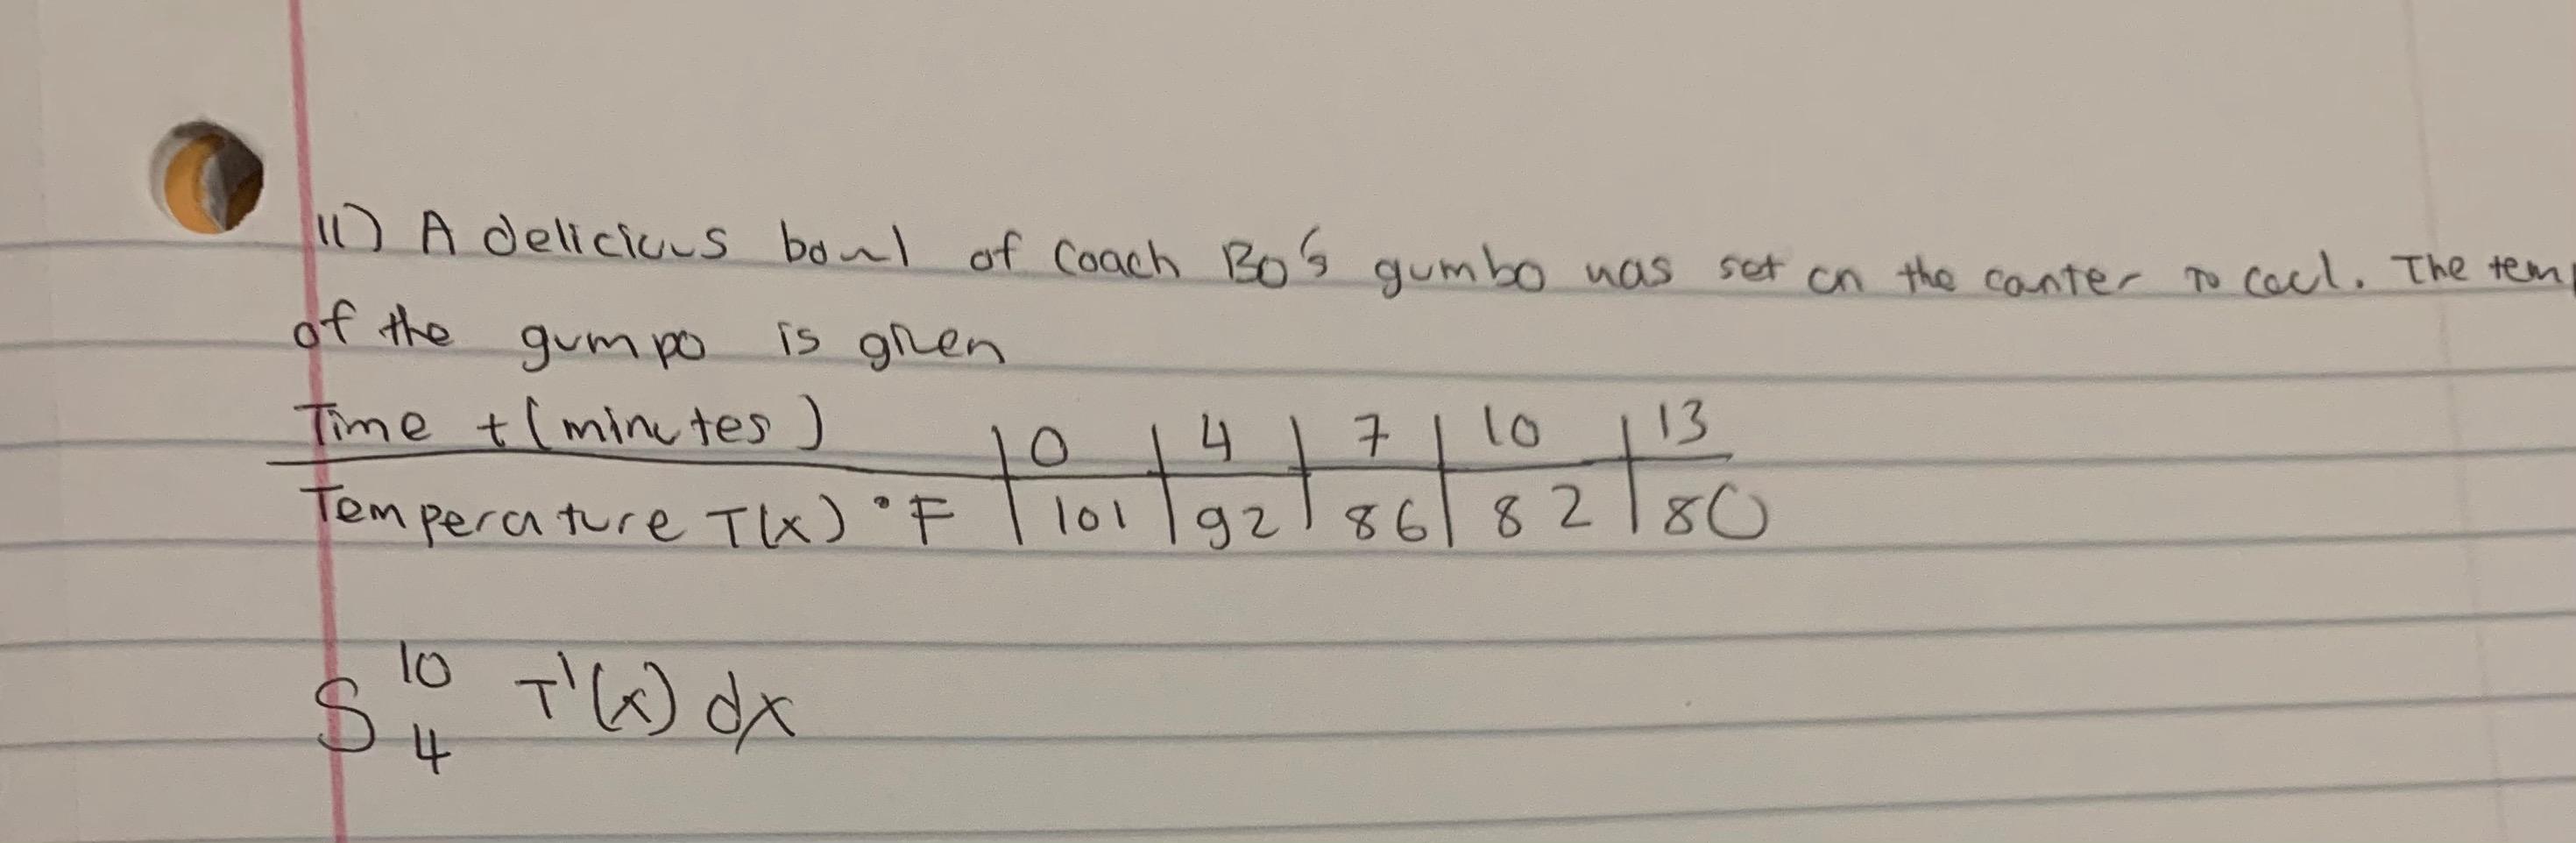 11) A delicious bowl of Coach Bo's gumbo was set on the conter to cool. The tem
of the gumpo is given
Time t (minutes) | 0 | 4 | 7 | 10 | 13
Temperature T(x) °F | 101 | 92 | 86 | 82 | 80
S 10 4 T'(x) dx